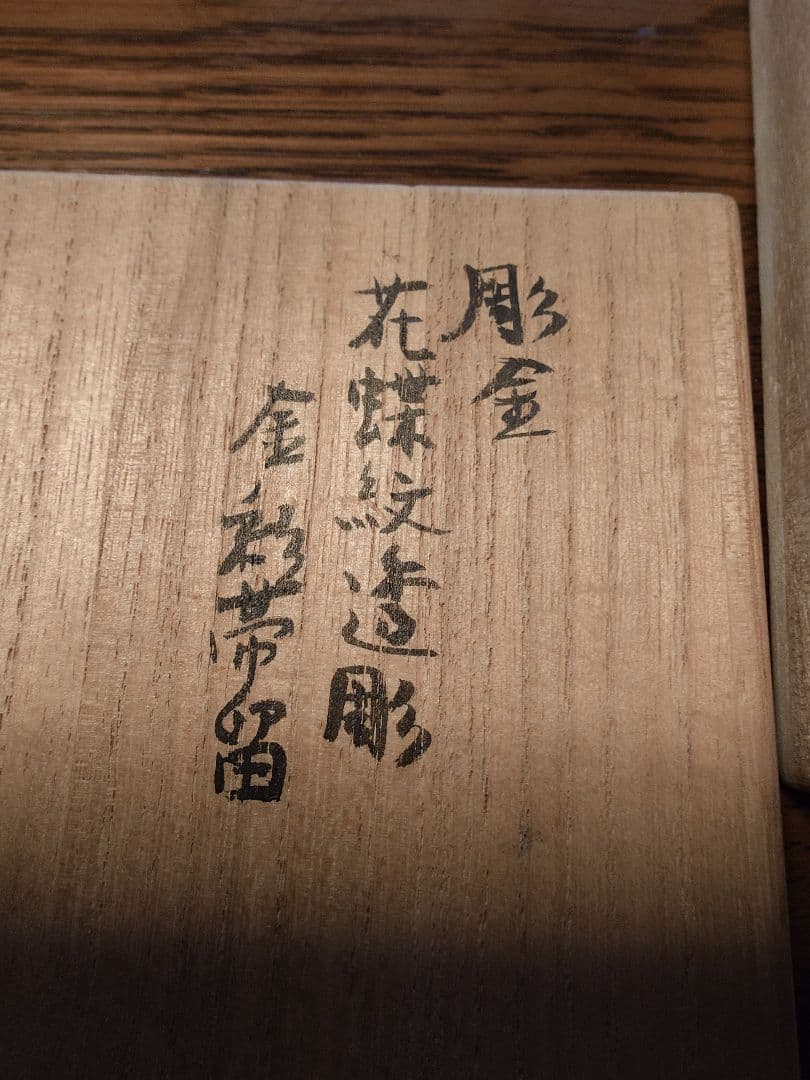 彫金
花蝶紋透彫
金彩帯留